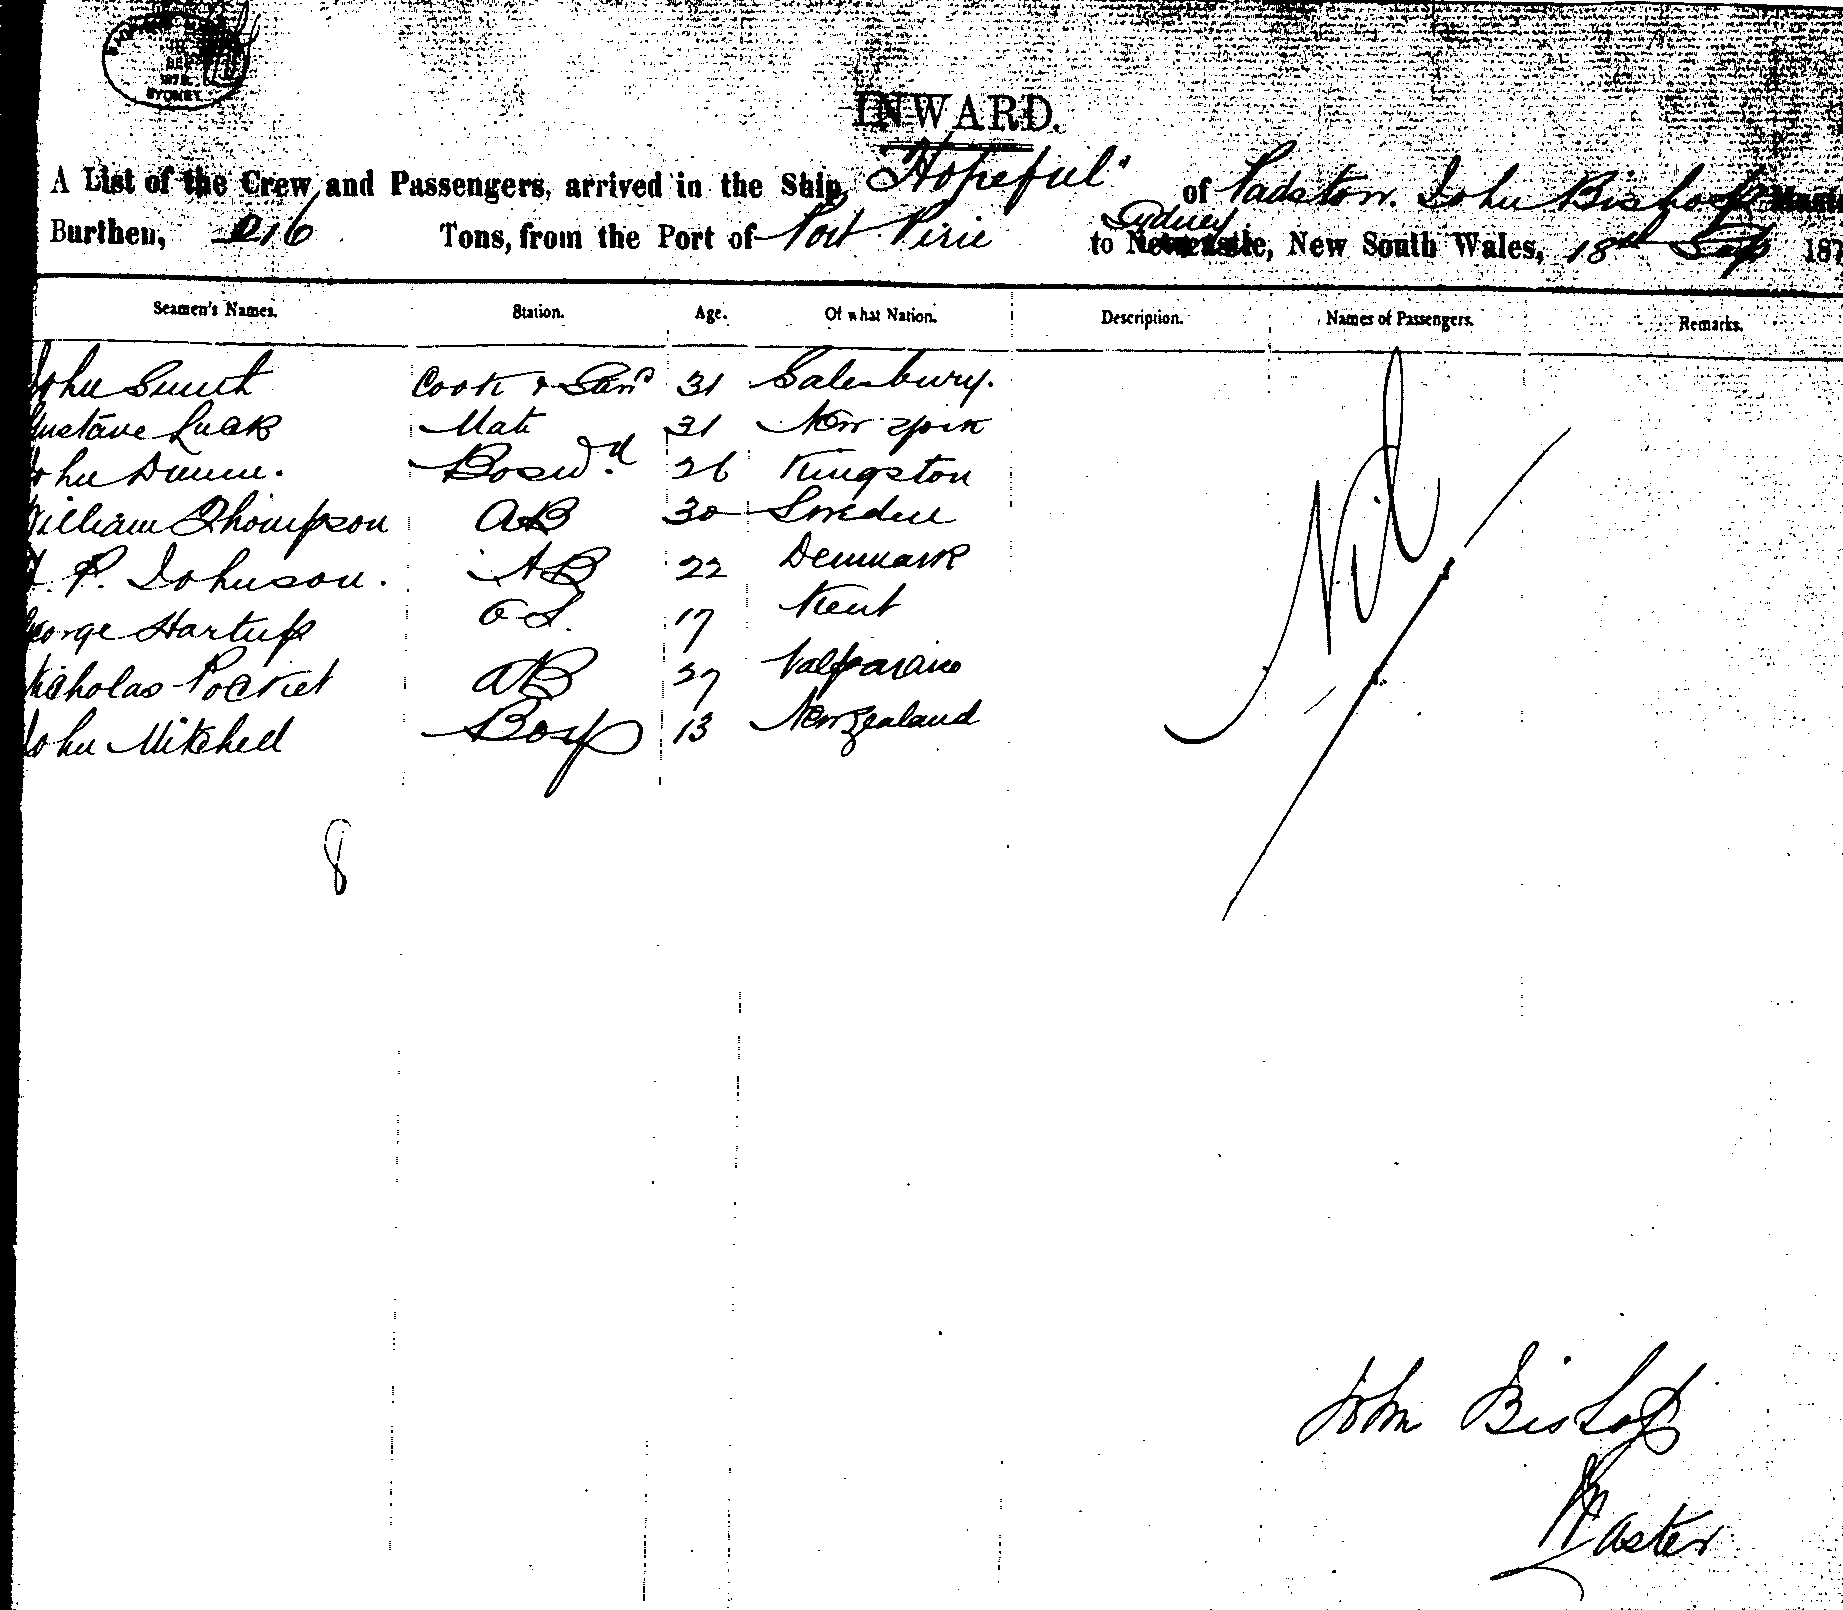 SYDNEY
INWARD.
A List of the Crew and Passengers, arrived in the Ship, "Hopeful" of Padstow. John Bishop
Burthen, 216 Tons, from the Port of Port Pirie to Newcastle, Sydney New South Wales, 18th Sep 187
Seamen's Names. Station. Age. Of what Nation. Description. Names of Passengers. Remarks.
John Smith Cook & 31 Salesbury.
Gustave Luck Mate 31 New York
John Dunn. 26 Kingston
William Thompson AB 30 Sweden
P. Johnson. AB 22 Denmark
George Hartup O S. 17 Kent
Nicholas Pocket AB 27 Valparaiso
John Mitchell Boy 13 New Zealand
Nil
8
John Bishop
Master